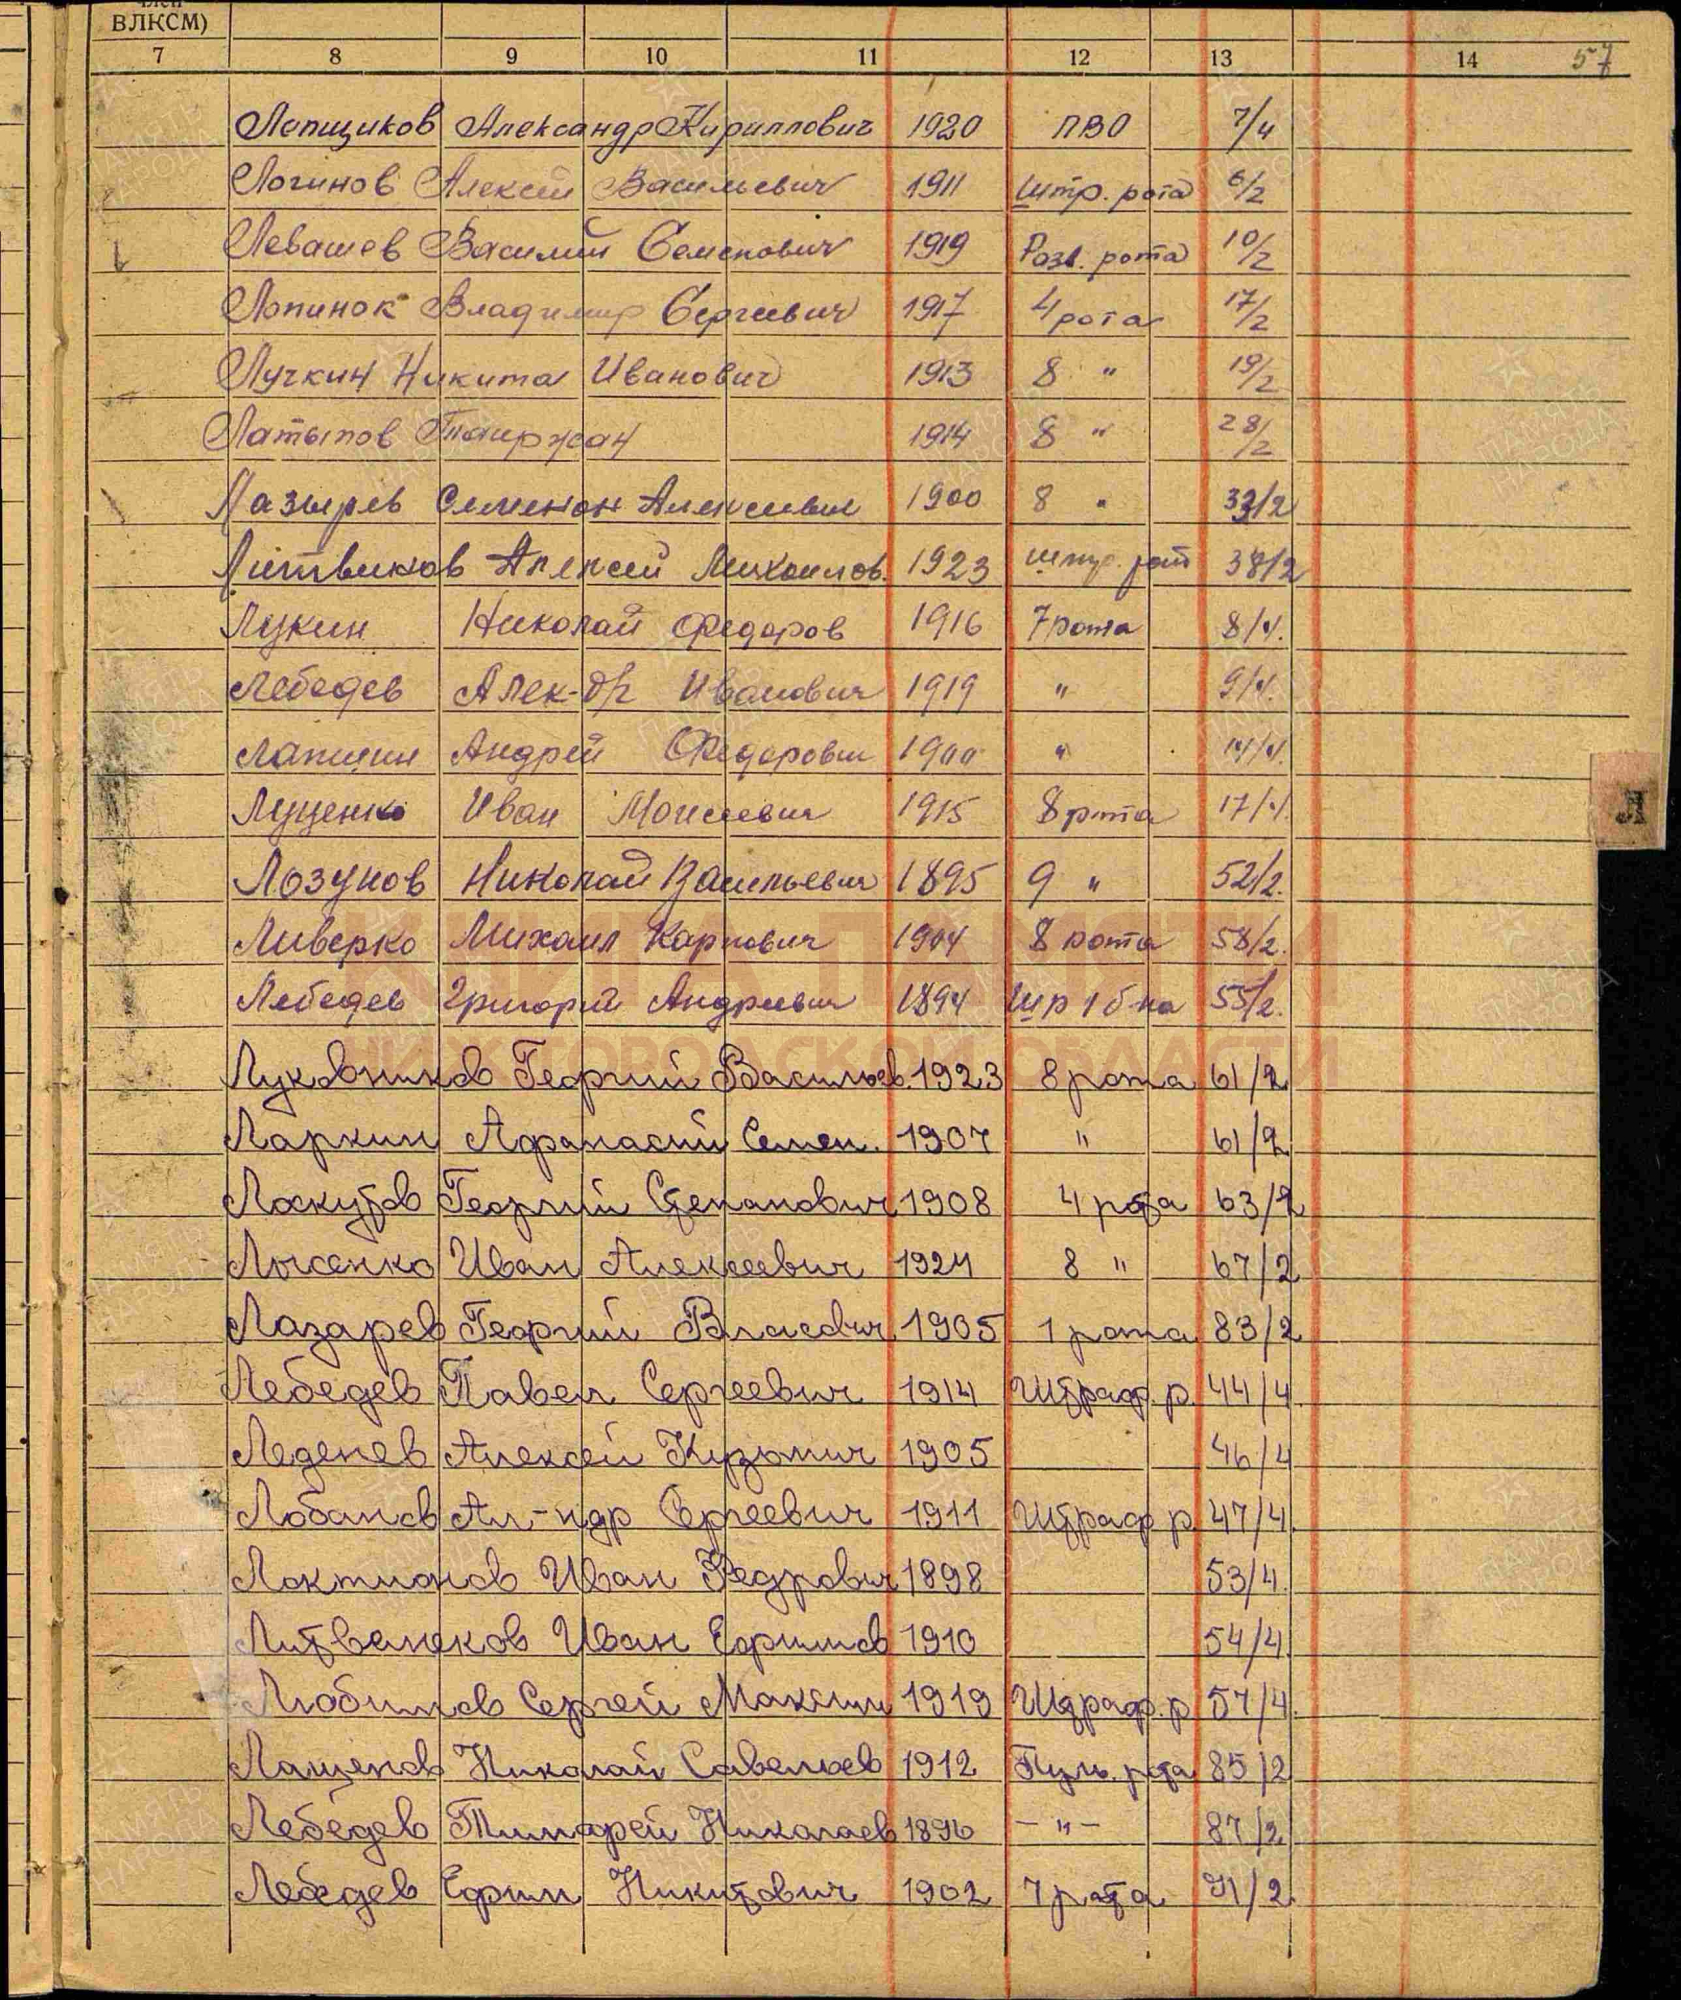 член
ВЛКСМ)
7 8 9 10 11 12 13 14 57
Лопщиков Александр Кириллович 1920 ПВО 7/4
Логинов Алексей Васильевич 1911 Штр. рота 6/2
Левашев Василий Семенович 1919 Разв. рота 10/2
Лопинок Владимир Сергеевич 1917 4 рота 17/2
Лучкин Никита Иванович 1913 8 " 19/2
Латыпов Таиржан 1914 8 " 28/2
Лазырев Семенон Алексеевич 1900 8 " 33/2
Литвиков Алексей Михайлов. 1923 штр. рот 38/2
Лукин Николай Федоров 1916 7 рота 8/4.
Лебедев Алек-др Иванович 1919 " 9/4.
Лапшин Андрей Федорович 1900 " 14/4.
Луценко Иван Моисеевич 1915 8 рота 17/4.
Лозунов Николай Васильевич 1895 9 " 52/2.
Ливерко Михаил Карпович 1904 8 рота 58/2.
Лебедев Григорий Андреевич 1894 Шр 1 б-на 55/2.
Луковников Георгий Васильев. 1923 8 рота 61/2
Ларкин Афанасий Семен. 1907 " 61/2
Лоскутов Георгий Степанович 1908 4 рота 63/2
Лысенко Иван Алексеевич 1924 8 " 67/2
Лазарев Георгий Власович 1905 1 рота 83/2
Лебедев Павел Сергеевич 1914 Штраф. р. 44/4
Леденев Алексей Кузьмич 1905 46/4
Лобанов Ал-ндр Сергеевич 1911 Штраф. р. 47/4
Локтионов Иван Федрович 1898 53/4.
Литвенюков Иван Ефимов 1910 54/4
Любимов Сергей Максим 1919 Штраф. р 57/4.
Лащенов Николай Савельев 1912 Пуль. рота 85/2
Лебедев Тимофей Николаев 1896 - " - 87/2
Лебедев Ефим Никитович 1902 7 рота 91/2
Л
КНИГА ПАМЯТИ
НИЖЕГОРОДСКОЙ ОБЛАСТИ
ПАМЯТЬ НАРОДА